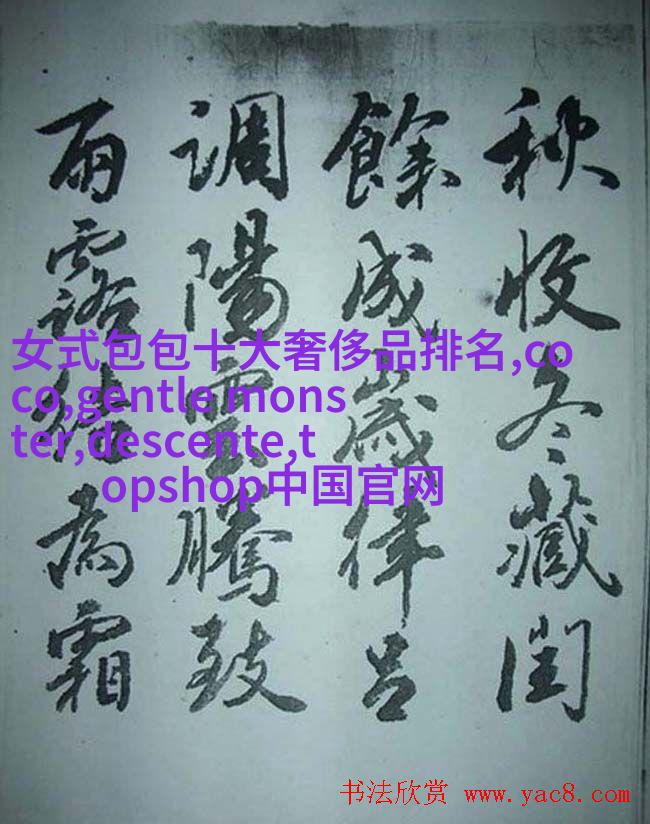 秋收冬藏閏
餘成歲律呂
調陽雲騰致
雨露結為霜
女式包包十大奢侈品排名,co
co,gentle mons
ter,descente,t
opshop中国官网
书法欣赏 www.yac8.com